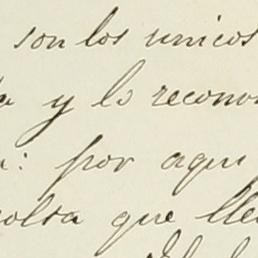 son los unicos
y lo recono
: por aqui
olsa que lle